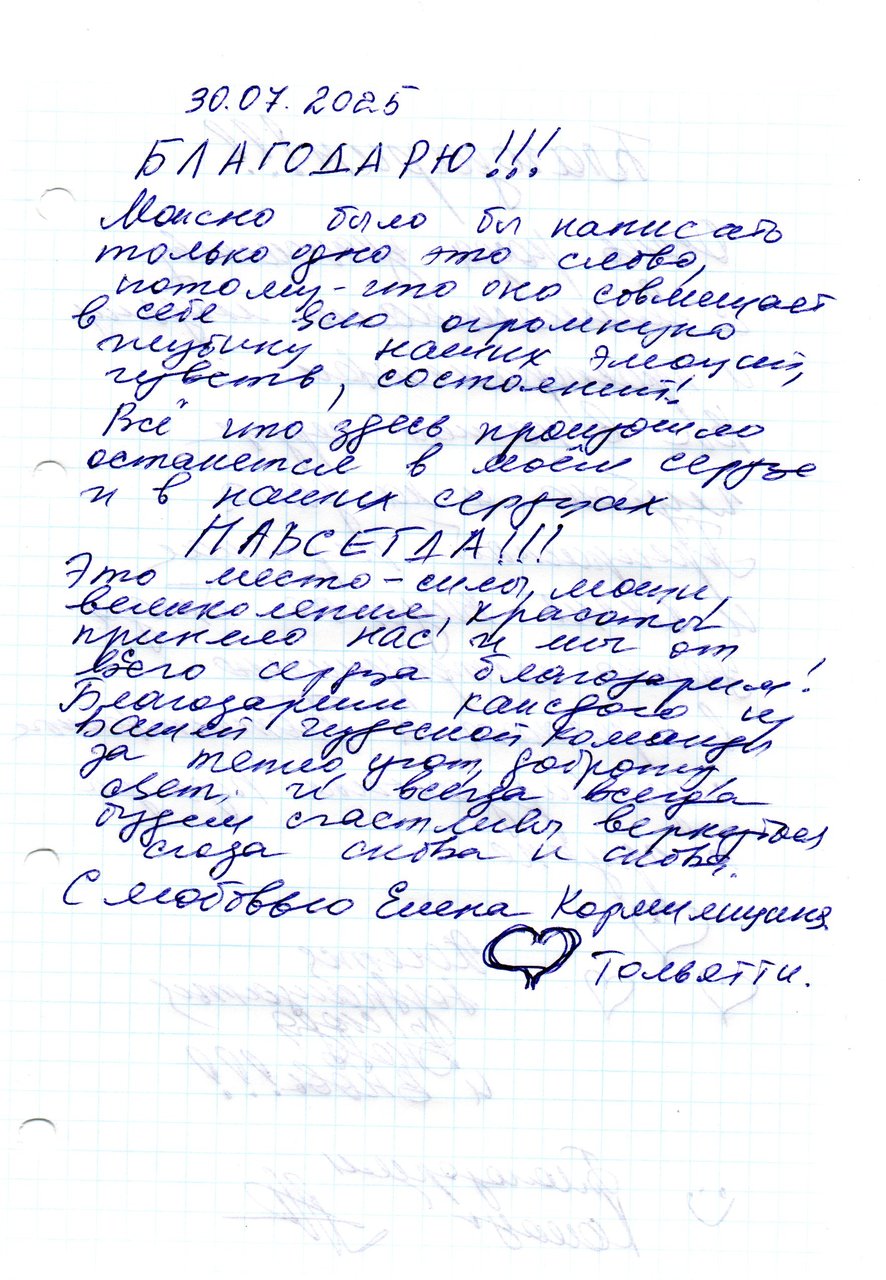 30.07.2025
БЛАГОДАРЮ!!!
Можно было бы написать
только одно это слово,
потому-что оно совмещает
в себе всю огромную
глубину наших эмоций,
чувств, состояний!
Всё что здесь произошло
останется в моём сердце
и в наших сердцах
НАВСЕГДА!!!
Это место-силы, мощи,
великолепия, красоты
приняло нас и мы от
всего сердца благодарим!
Благодарим каждого из
Вашей чудесной команды
за тепло, уют, доброту,
свет. И всегда всегда
будем счастливы вернуться
сюда снова и снова.
С любовью Елена
Тольятти.